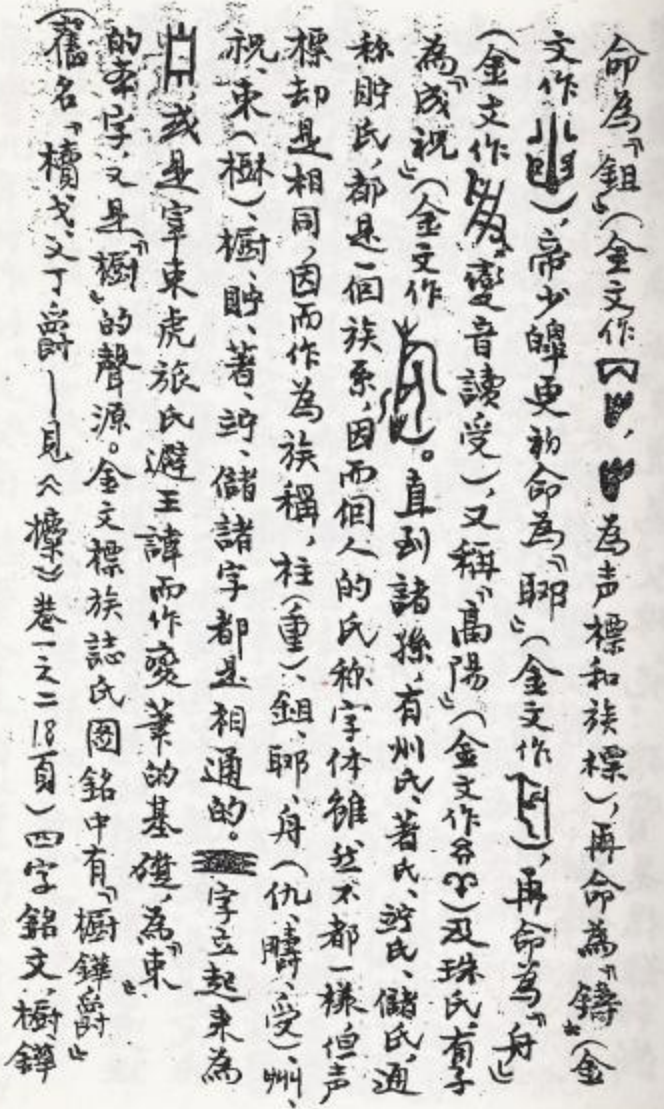 命為「鉏」(金文作 , 為声標和族標),再命為「鑄」(金
文作 ),帝少皞更初命為「耶」(金文作 ),再命為「舟」
(金文作 變音讀受),又稱「高陽」(金文作 )及珠氏,有子
為「成祝」(金文作 )。直到諸孫,有州氏、著氏、 氏、儲氏,通
称貯氏,都是一個族系,因而個人的氏称字体雖然不都一樣但声
標却是相同,因而作為族稱,柱(重)、鉏、耶、舟(仇、疇、受)、州、
祝、束( )、橱、貯、著、 、儲諸字都是相通的。 字立起来為
 ,或是宰束虎旅氏避王諱而作變筆的基礎,為「束」
的本字,又是「橱」的聲源。金文標族誌氏圖銘中有「橱鏵爵」
(舊名「櫝戈文丁爵—見《 》巻一之二18頁)四字銘文,橱鏵